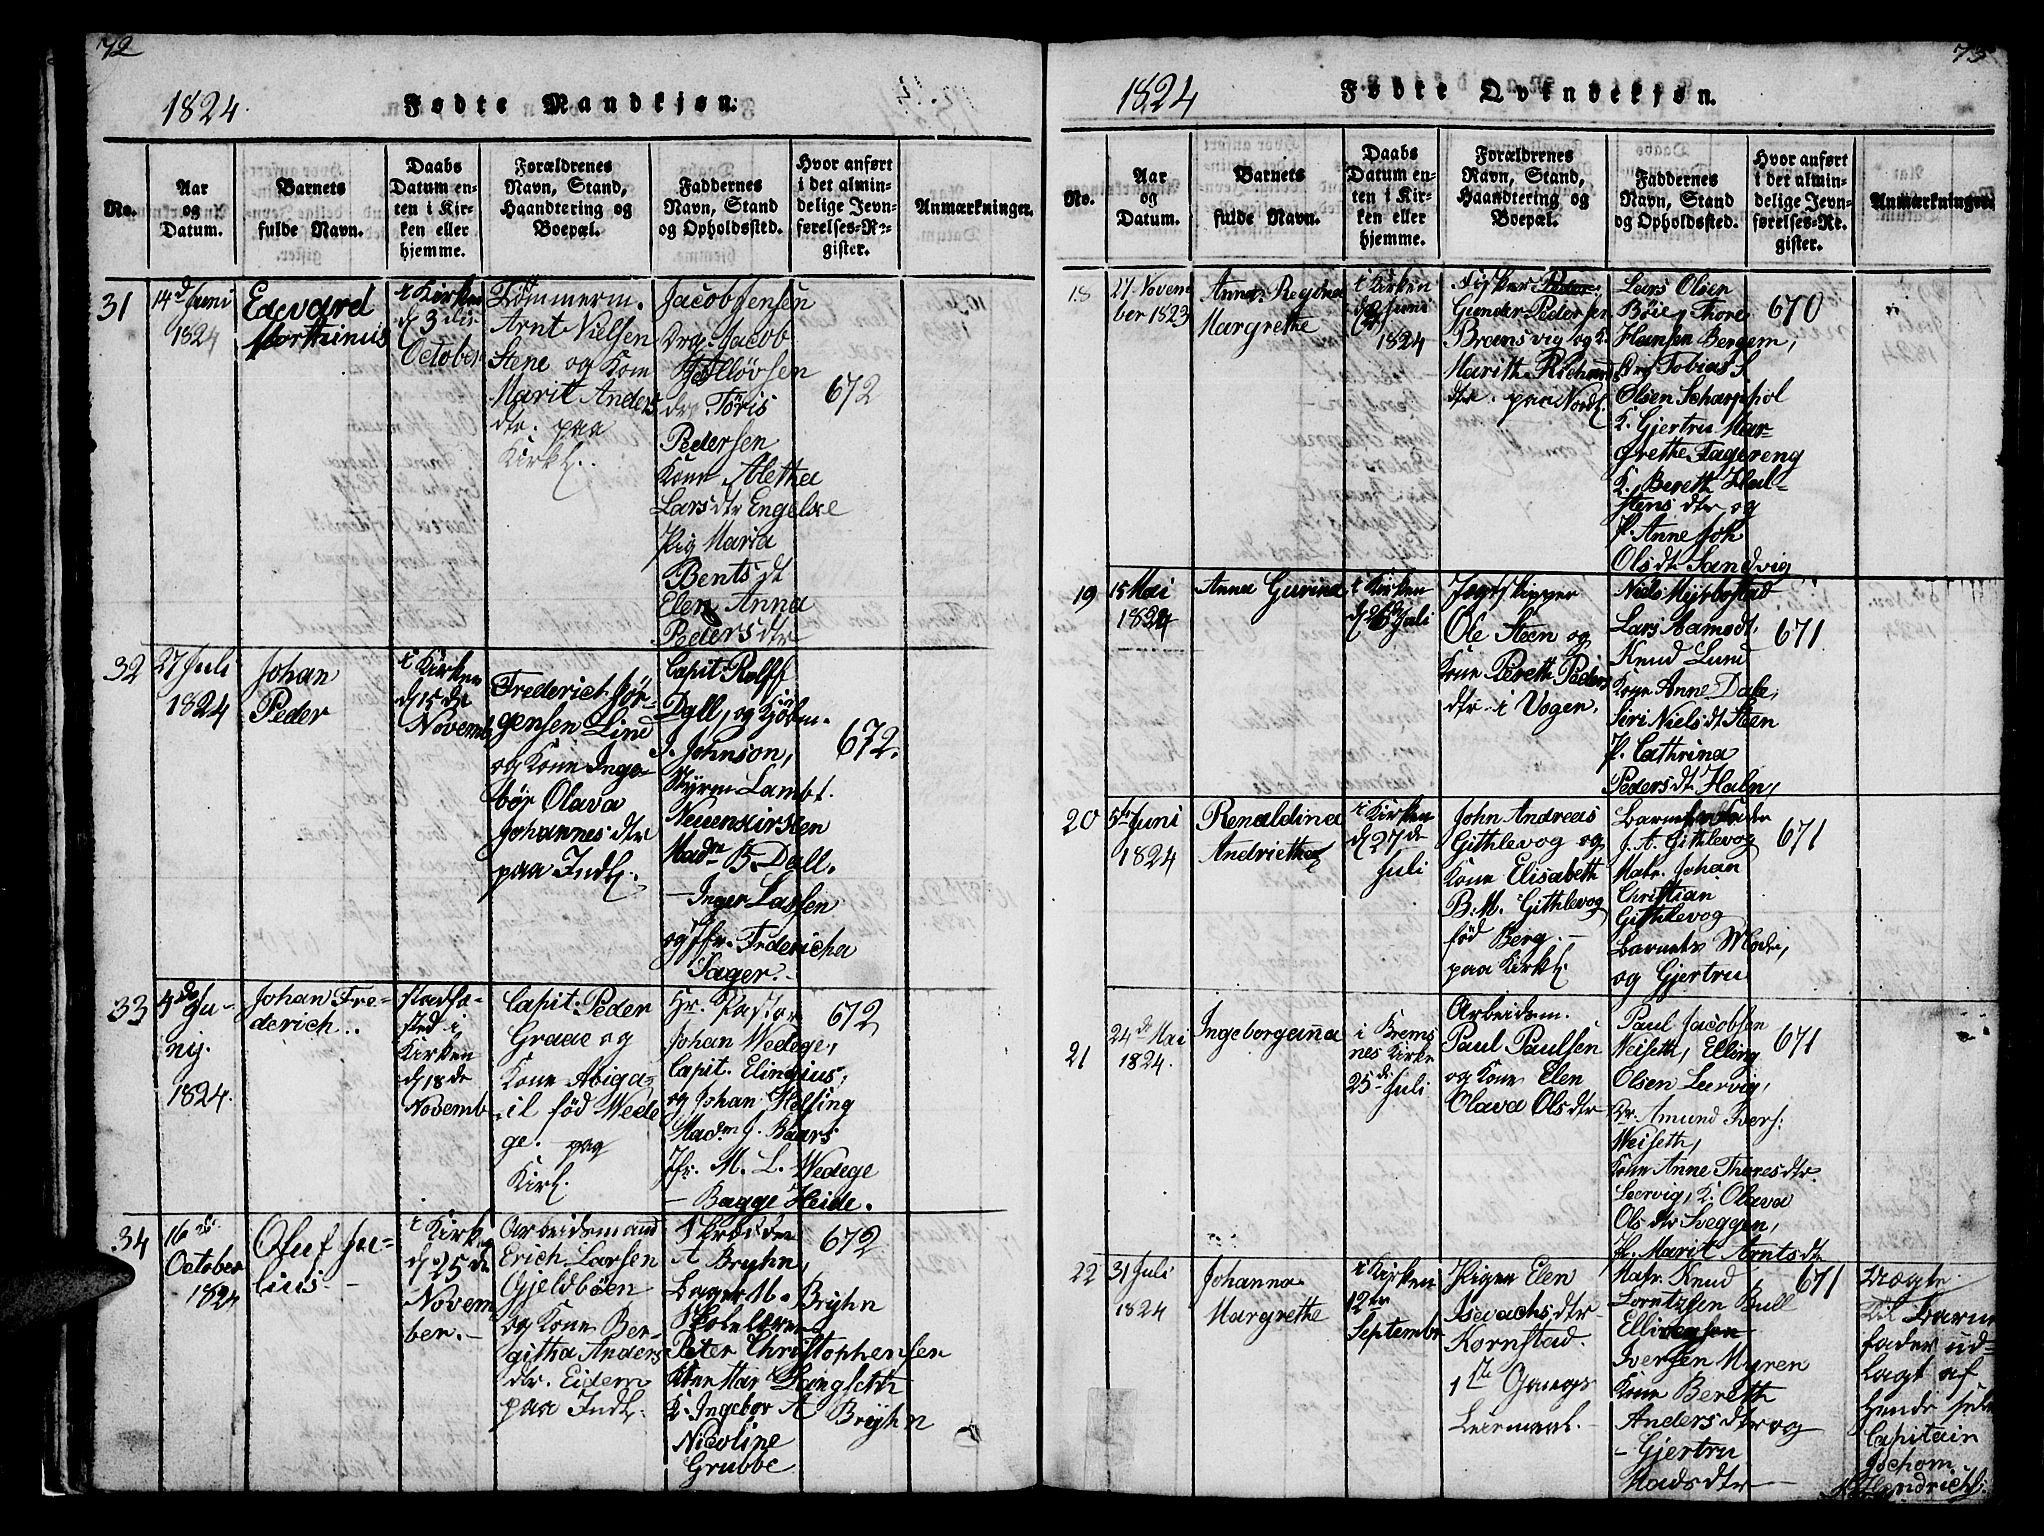 72
1824.
Fødte Mandkjøn.
No.
Aar
og
Datum.
Barnets
fulde Navn.
Daabs
Datum en-
ten i Kir-
ken eller
hjemme.
Forældrenes
Navn, Stand,
Haandtering og
Boepæl.
Faddernes
Navn, Stand
og Opholdssted.
Hvor anført
i det almin-
delige Jevn-
førelses-Re-
gister.
Anmærkninger.
31
14d Juni
1824
Edvard
Morthinus
i Kirken
d 3die
October
Tømmerm.
Arnt Nielsen
Stene og Kone
Marit Anders
dtr. paa
Kirkl.
Jacob Jensen
Drg. Jacob
Pedersen
Kone Alethea
Lars dtr Engelsæ
Pig Maria
Bents dt
Elen Anna
Peders dtr
672
32
27 Juli
1824
Johan
Peder
i Kirken
d 15 de
Novemb
Frederich Jør-
gensen Lind
og Kone Inge-
bør Olava
Johannes dtr
paa Indl.
Capit. Rolff
Dall, og Kjøbm.
J. Johnson,
Styrm Lambt.
Neuenkirsten
Madm B. Dall.
- Inger Lassen
og Jfr. Fredericha
Sager. -
672.
33
4de Ju-
nij.
1824.
Johan Fre-
derich.
Stadfæ-
sted i
Kirken
d 18 de
Novemb
Capit. Peder
Graae og
Kone Abiga-
il fød Wede
ge. - paa
Kirl.
Hr. Pastor
Johan Wedege,
Capit. Elingius,
og Johan Helsing
Madm. J. Baars
Jfr. M. L. Wedege
- Bagge Heide.
672
34
16 de
October
1824
Oluf Ju-
lius -
i Kirke
d. 25 de
Novem
ber. -
Arbeidsmand
Erich Larsen
Gjeldbøen
og Kone Ber-
githa Anders
dtr. Eidem
paa Indl.
A Bryhn,
Lager M. Bryhn
Skolelærer
Peter Christophensen
Kone Mar Langseth
K. Ingebor A Bryhn
Nicoline
Grubbe
672
73
1824
Fødte Qvindekjøn.
No.
Aar
og
Datum.
Barnets
fulde Navn.
Daabs
Datum en-
ten i Kir-
ken eller
hjemme.
Forældrenes
Navn, Stand,
Haandtering og
Boepæl.
Faddernes
Navn, Stand
og Opholdssted.
Hvor anført
i det almin-
delige Jevn-
førelses-Re-
gister.
Anmærkninger.
18
27 Novem
ber 1823
Anna Regina
Margrethe
i Kirken
Juni
1824
Fisker Peder
Gunder Pedersen
Bremsvig og K.
Marith Richards
dtr. paa Nordl.
Lars Olsen
Bøie, Thore
Hansen Bergem,
Drg Tobias S
Olsen Scharpsiol
K. Gjertru Mar-
grethe Fagereng
K. Bereth Hal-
stens dtr og
P. Anne Joh
Ols dt Sandvig
670
19
15 Mai
1824
Anna Gurina
i Kirken
d 26 Juli
Jagtskipper
Ole Steen og
Kone Bereth Peders
dtr i Vogen,
Niels Myrbostad
Lars Aamodt,
Knud Lund
Kone Anne Dale,
Siri Niels dt Steen
P. Cathrina
Peders dt Haln,
671
20
5te Juni
1824
Renaldina
Andriethe
i Kirken
d 27 de
Juli
John Andreas
Githlevog og
Kone Elisabeth
B. M. Githlevog
fød Berg. -
paa Kirkl
Barnefader
J. A. Githlevog
Matr. Johan
Christian
Githlevog
Barnets Moder,
og Gjertru
671
21
24 de Mai
1824.
Ingeborganna
i Brems
nes Kirke
25 de Juli
Arbeidsm.
Paul Paulsen
og Kone Elen
Olava Ols dtr
Paul Jacobsen
Neiseth, Elling
Olsen Lervig,
Dr. Amund Ivers:
Neiseth,
Kone Anne Thores dtr.
Leervig, K. Olava
Ols dtr Sveggen,
P. Marit Arnts dt
671
22
31 Juli
1824
Johanna
Margrethe
i Kirken
12te
Septembr
Pigen Elen
Isachs dtr
Kornstad.
1ste Gangs
Leiermaal.
Matr. Knud
Lorntzsen Bull
Iversen Myren
Kone Bereth
Anders dtr og
- Gjertru
Mads dtr -
671
Til Barne
fader ud-
lagt af
hende selv
Capitain
Jochom
Hendrich